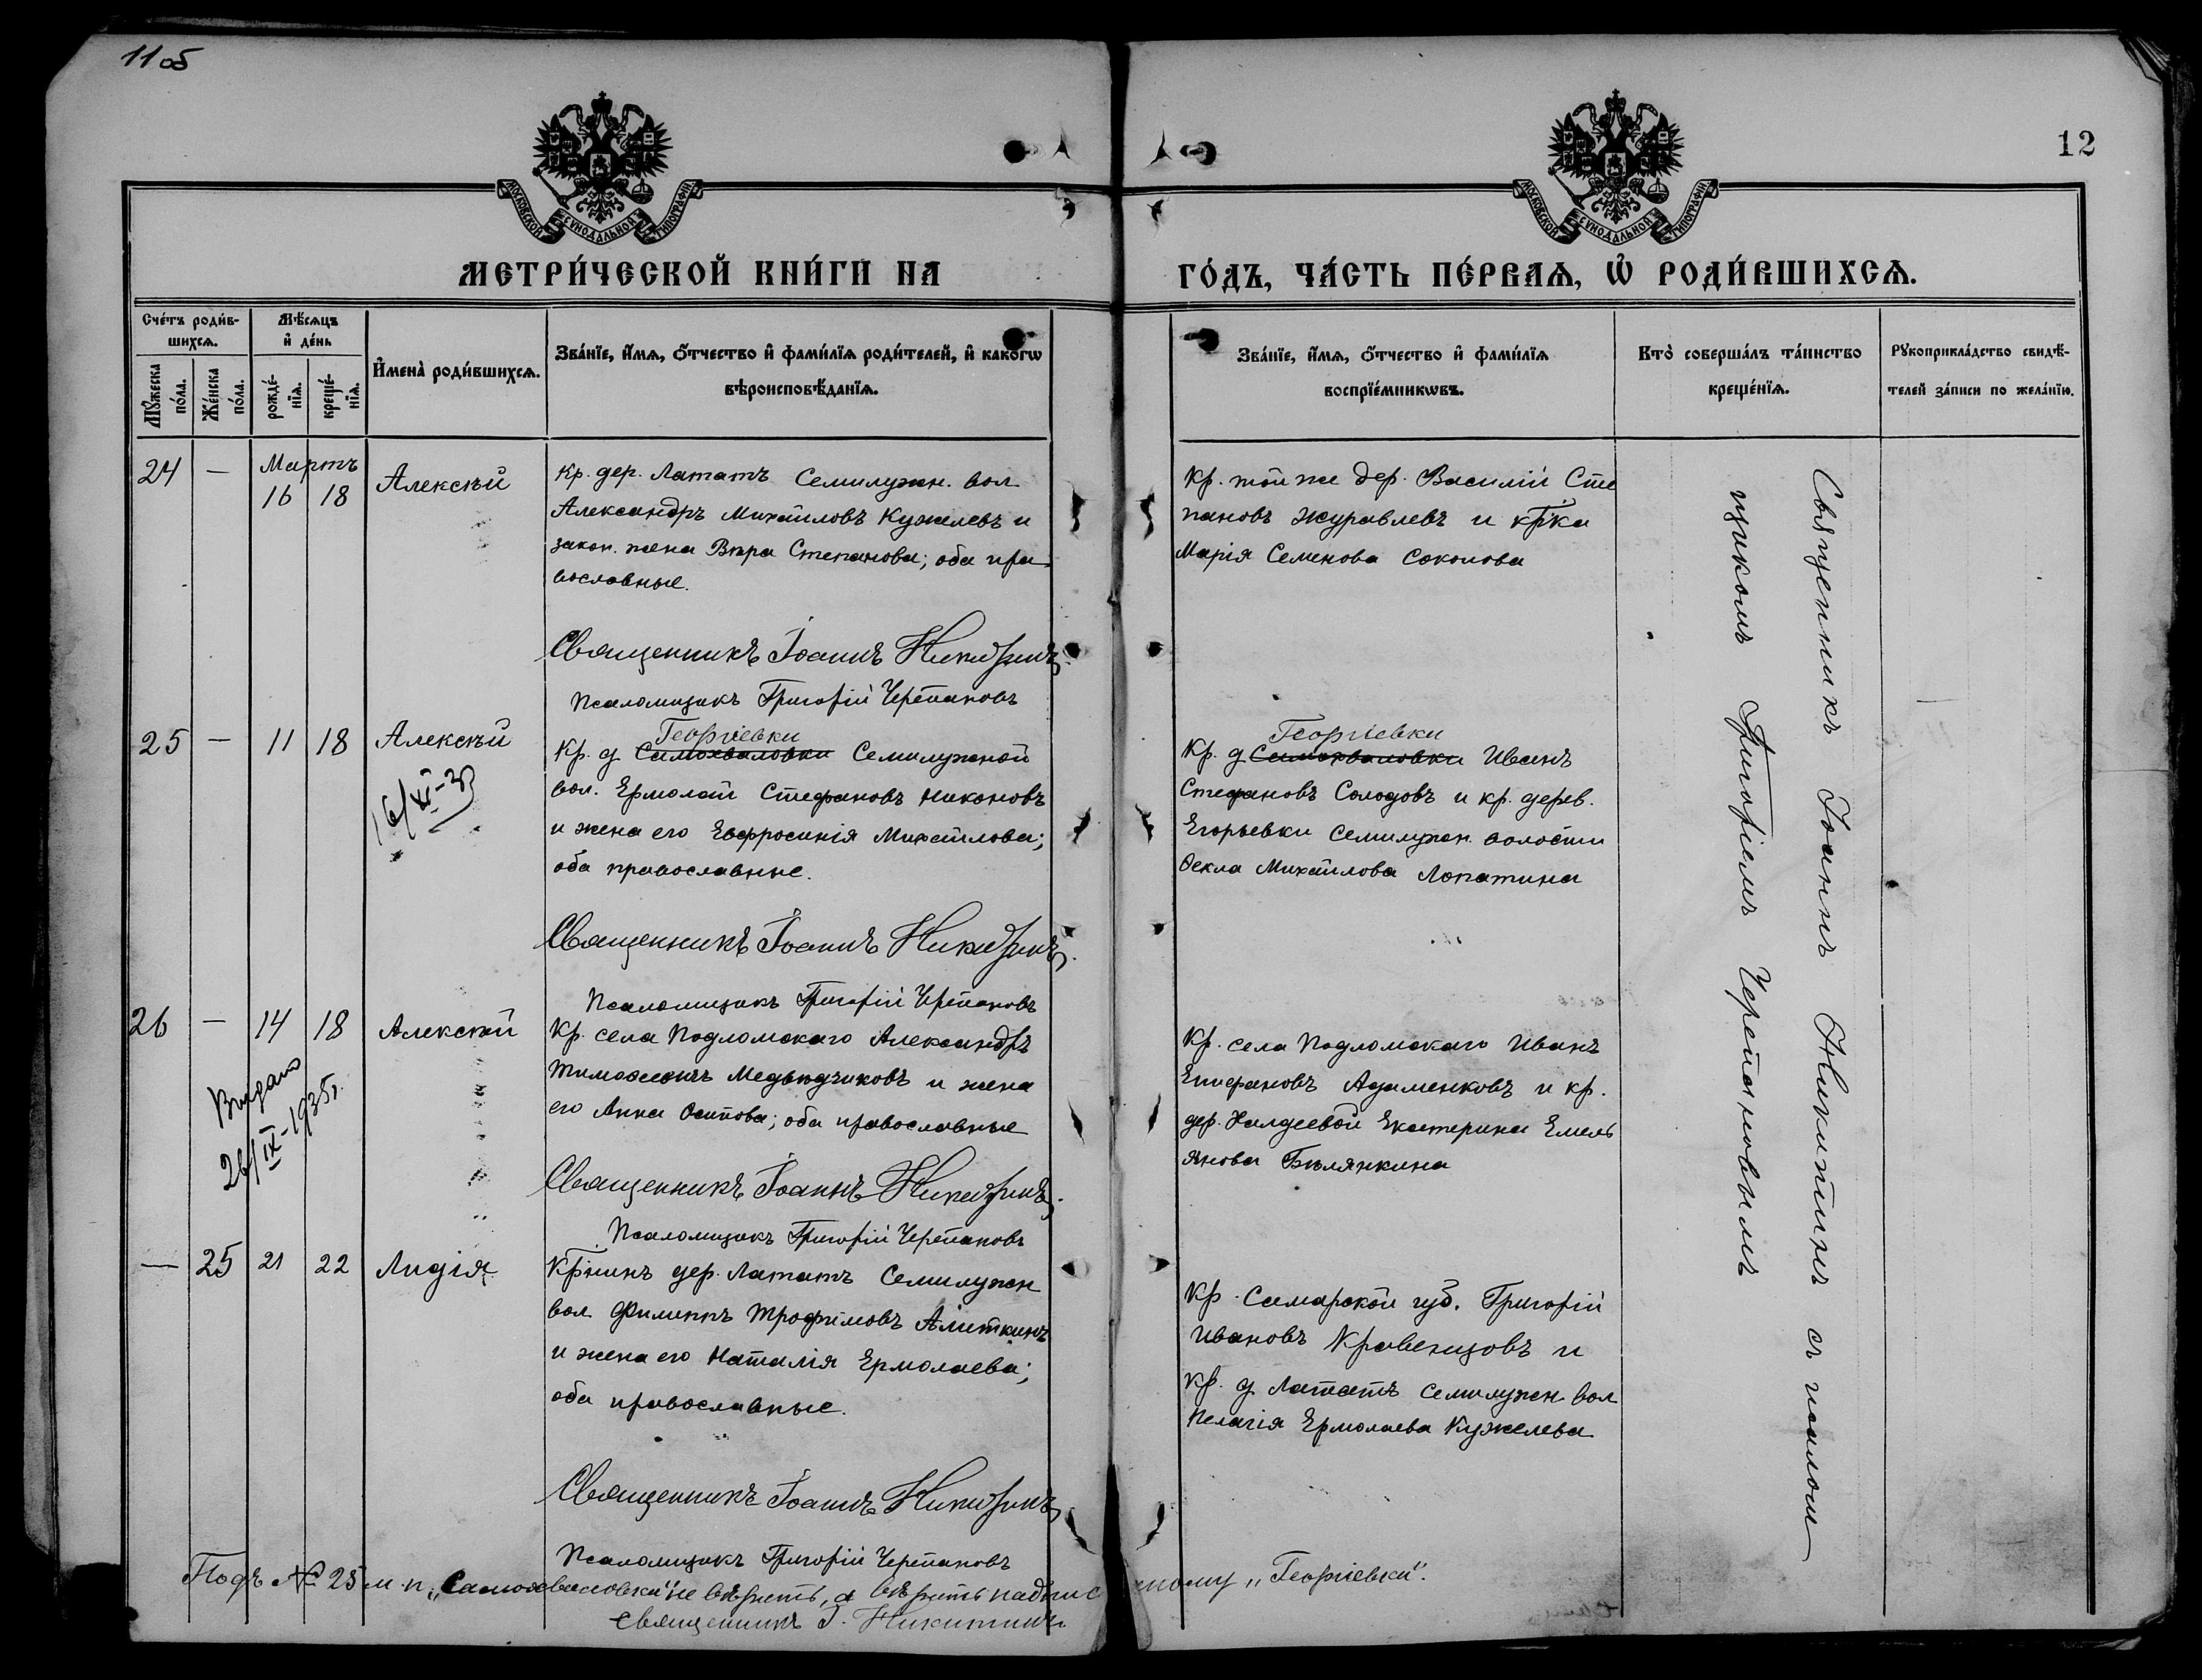 11 об
12
МОСКОВСКОЙ СѴНОДАЛЬНОЙ ТИПОГРАФІИ
МОСКОВСКОЙ СѴНОДАЛЬНОЙ ТИПОГРАФІИ
МЕТРИ́ЧЕСКОЙ КНИ́ГИ НА
ГО́ДЪ, ЧА́СТЬ ПЕ́РВАѦ, Ѡ҆ РОДИ́ВШИХСѦ.
Сче́тъ роди́в-
шихсѧ.
Мꙋ́жеска
по́ла.
Же́нска
по́ла.
Мѣ́сѧцъ
и҆ де́нь
рожде́-
нїѧ.
креще́-
нїѧ.
И҆мена̀ роди́вшихсѧ.
Зва́нїе, и҆́мѧ, ѻ҆́тчество и҆ фами́лїѧ роди́телей, и҆ како́гѡ
вѣроисповѣ́данїѧ.
Зва́нїе, и҆́мѧ, ѻ҆́тчество и҆ фами́лїѧ
воспрїе́мникѡвъ.
Кто̀ соверша́лъ та́инство
креще́нїѧ.
Рꙋкоприкла́дство свидѣ́-
телей за́писи по жела́нїю.
24 — Мартъ
16 18 Алексѣй
Кр. дер. Лататъ Семилужн. вол
Александръ Михайловъ Кужелевъ и
закон. жена Вѣра Степанова; оба пра-
вославные.
Священникъ Іоаннъ Никитинъ
Псаломщикъ Григорій Черепановъ
Кр. той же дер. Василій Сте
пановъ Журавлевъ и кр-ка
Марія Семенова Соколова
25 — 11 18 Алексѣй
16/XI-35
Георгіевки
Кр. д Самохваловки Семилужной
вол. Ермолай Стефановъ Никоновъ
и жена его Евфросинія Михайлова;
оба православные.
Священникъ Іоаннъ Никитинъ.
Псаломщикъ Григорій Черепановъ
Георгіевки
Кр. д Самохваловки Иванъ
Стефановъ Солодовъ и кр. дерев.
Егорьевки Семилужн. волости
Ѳекла Михайлова Лопатина
26 — 14 18 Алексѣй
Выдано
26/IX-1935г.
Кр. села Подломскаго Александръ
Тимоѳеевичъ Медвѣдчиковъ и жена
его Анна Осипова; оба православные
Священникъ Іоаннъ Никитинъ.
Псаломщикъ Григорій Черепановъ
Кр. села Подломскаго Иванъ
Епифановъ Адаменковъ и кр.
дер. Халдеевой Екатерина Емель
янова Бѣлянкина
— 25 21 22 Лидія
Кр-нинъ дер. Лататъ Семилужн
вол Филиппъ Трофимовъ Алиткинъ
и жена его Наталія Ермолаева;
оба православные.
Священникъ Іоаннъ Никитинъ
Псаломщикъ Григорій Черепановъ
Кр. Самарской губ. Григорій
Ивановъ Кравенцовъ и
кр. д Лататъ Семилужен. вол
Пелагія Ермолаева Кужелева
Священникъ Іоаннъ Никитинъ съ псалом
щикомъ Григоріемъ Черепановымъ
Подъ № 25 м. п. „Самохваловки" не вѣрить, а вѣрить надписанному „Георгіевки".
Священникъ І. Никитинъ